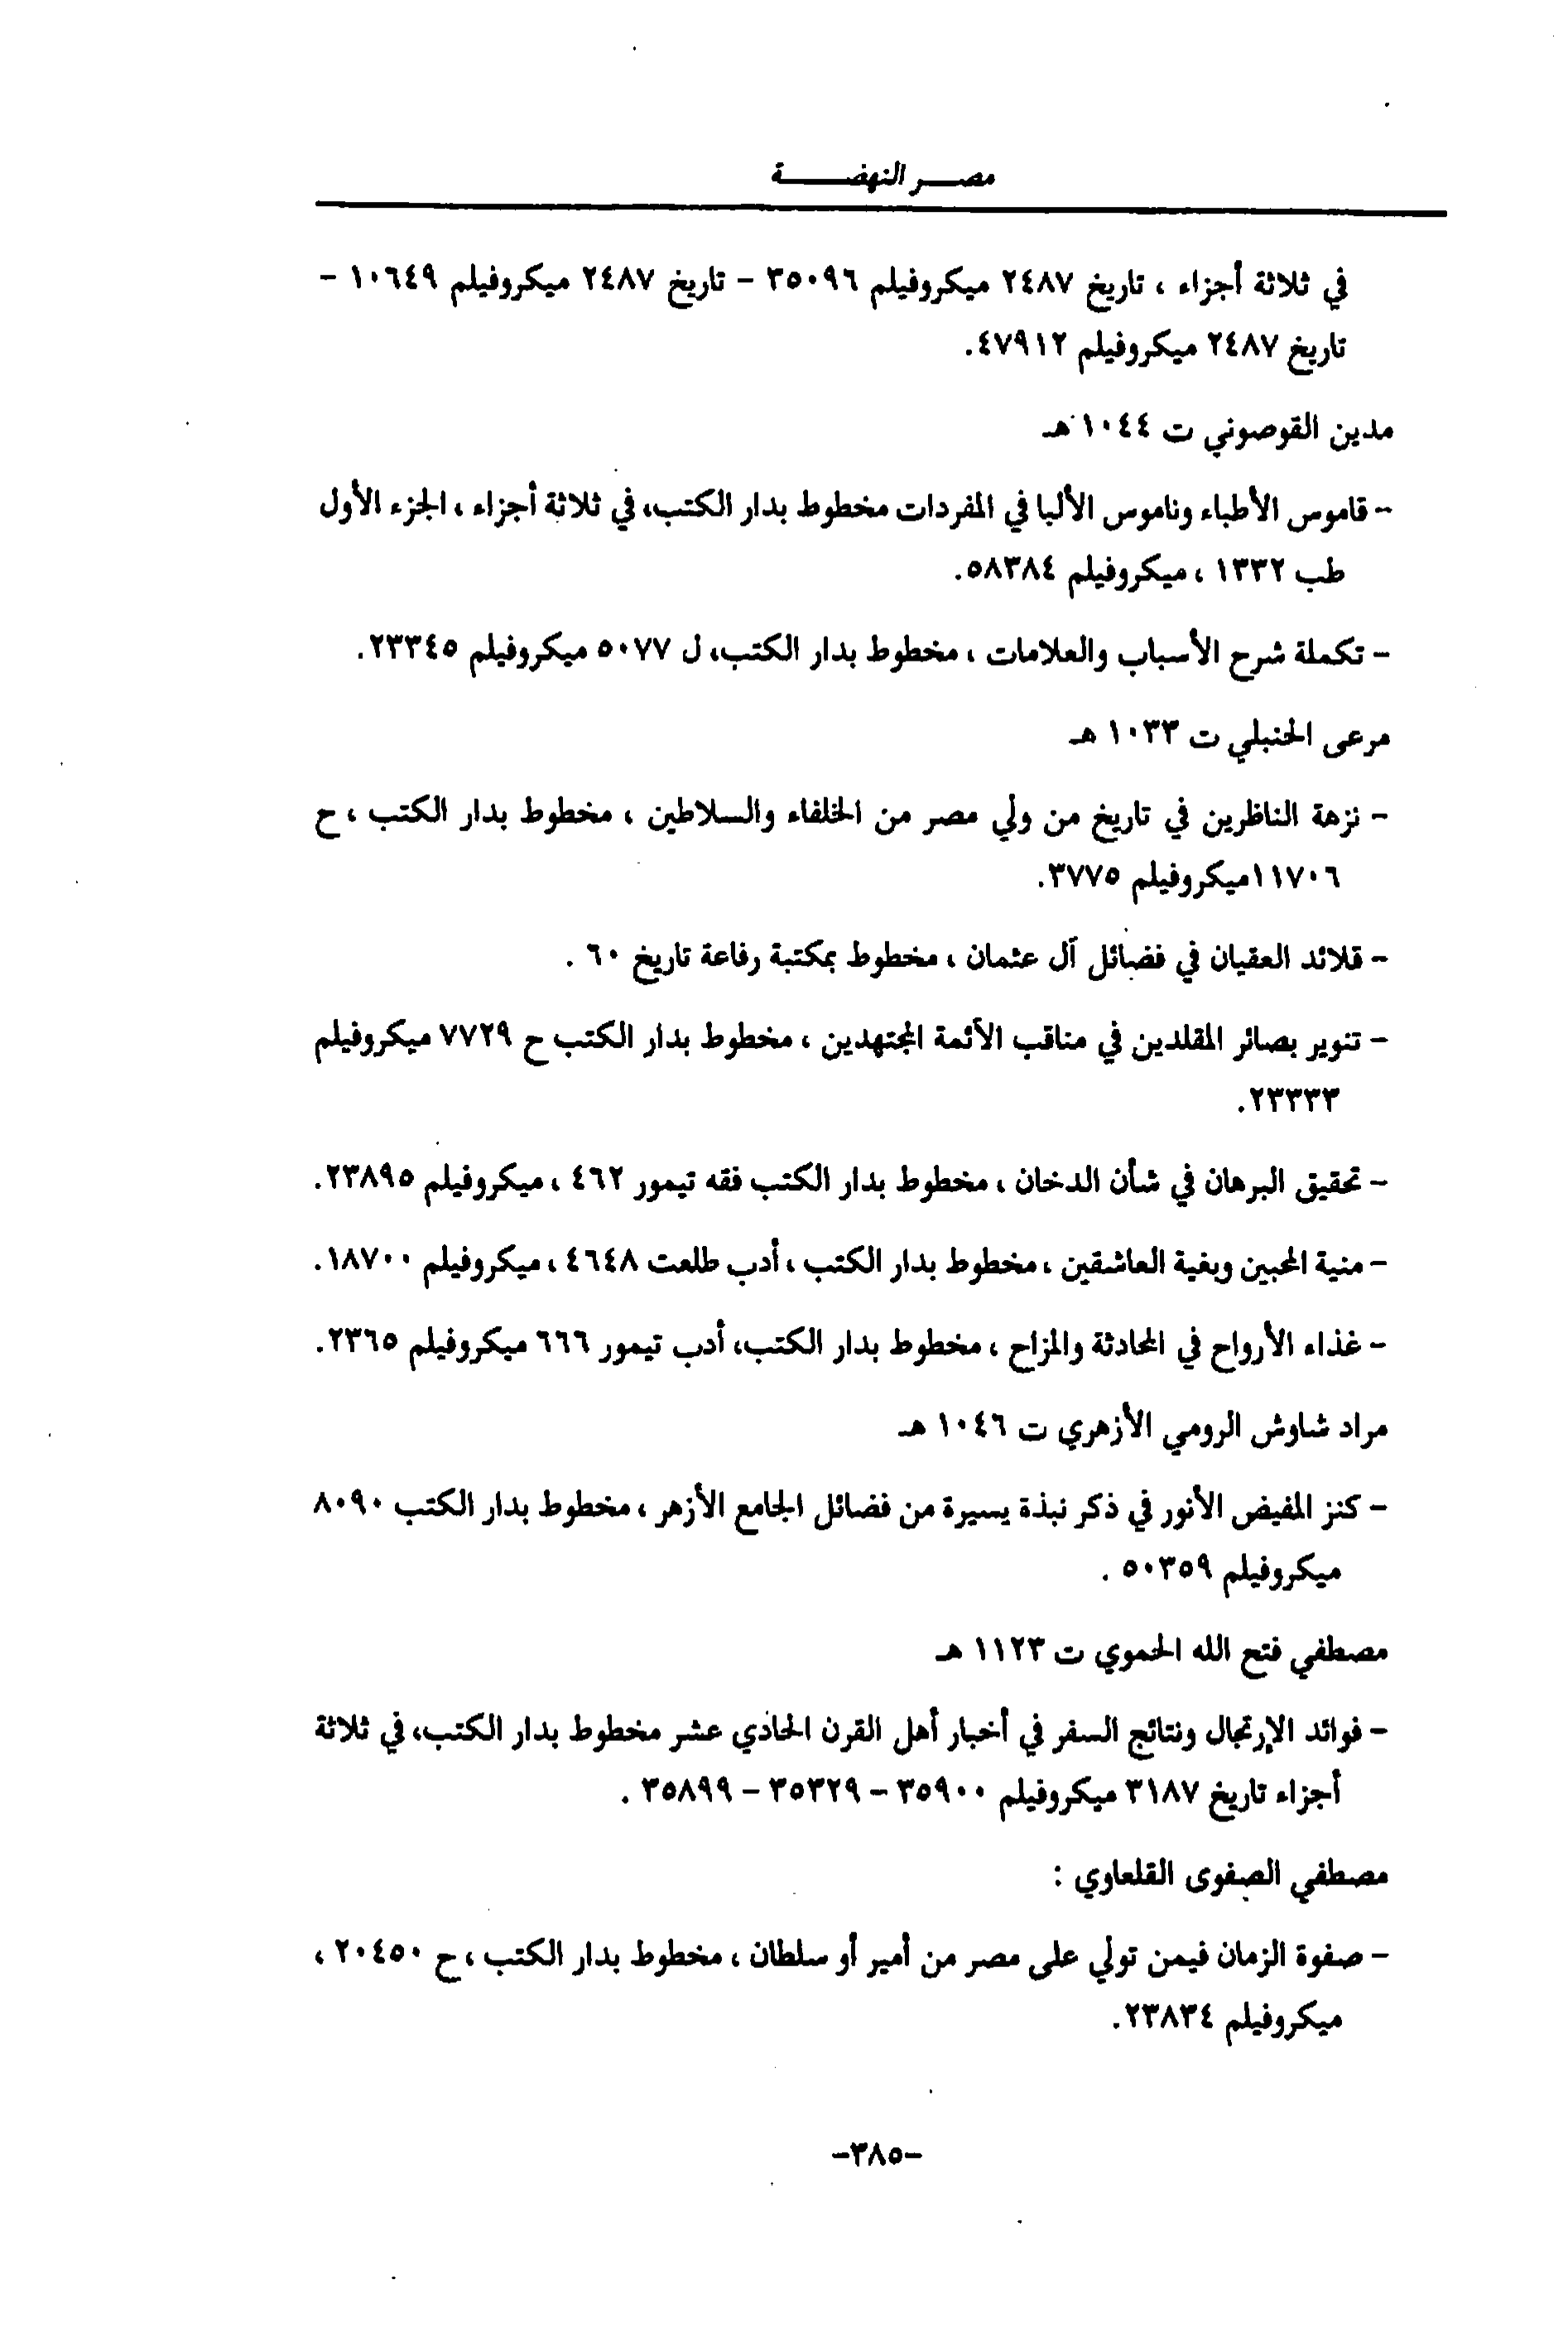 مصـــر النهضـــــة
في ثلاثة أجزاء ، تاريخ ٢٤٨٧ ميكروفيلم ٣٥٠٩٦ – تاريخ ٢٤٨٧ ميكروفيلم ١٠٦٤٩ –
تاريخ ٢٤٨٧ ميكروفيلم ٤٧٩١٢.
مدين القوصوني ت ١٠٤٤هـ
– قاموس الأطباء وناموس الألبا في المفردات مخطوط بدار الكتب، في ثلاثة أجزاء ، الجزء الأول
طب ١٣٣٢ ، ميكروفيلم ٥٨٣٨٤.
– تكملة شرح الأسباب والعلامات ، مخطوط بدار الكتب، ل ٥٠٧٧ ميكروفيلم ٢٣٣٤٥.
مرعى الحنبلي ت ١٠٣٣ هـ
– نزهة الناظرين في تاريخ من ولي مصر من الخلفاء والسلاطين ، مخطوط بدار الكتب ، ح
١١٧٠٦ميكروفيلم ٣٧٧٥.
– قلائد العقيان في فضائل آل عثمان ، مخطوط بمكتبة رفاعة تاريخ ٦٠ .
– تنوير بصائر المقلدين في مناقب الأئمة المجتهدين ، مخطوط بدار الكتب ح ٧٧٢٩ ميكروفيلم
٢٣٣٣٣.
– تحقيق البرهان في شأن الدخان ، مخطوط بدار الكتب فقه تيمور ٤٦٢ ، ميكروفيلم ٢٣٨٩٥.
– منية المحبين وبغية العاشقين ، مخطوط بدار الكتب ، أدب طلعت ٤٦٤٨ ، ميكروفيلم ١٨٧٠٠.
– غذاء الأرواح في المحادثة والمزاح ، مخطوط بدار الكتب، أدب تيمور ٦٦٦ ميكروفيلم ٢٣٦٥.
مراد شاوش الرومي الأزهري ت ١٠٤٦ هـ
– كنز المفيض الأنور في ذكر نبذة يسيرة من فضائل الجامع الأزهر ، مخطوط بدار الكتب ٨٠٩٠
ميكروفيلم ٥٠٣٥٩ .
مصطفي فتح الله الحموي ت ١١٢٣ هـ
– فوائد الإرتجال ونتائج السفر في أخبار أهل القرن الحادي عشر مخطوط بدار الكتب، في ثلاثة
أجزاء تاريخ ٣١٨٧ ميكروفيلم ٣٥٩٠٠ – ٣٥٣٢٩ – ٣٥٨٩٩ .
مصطفي الصفوى القلعاوي :
– صفوة الزمان فيمن تولي على مصر من أمير أو سلطان ، مخطوط بدار الكتب ، ح ٢٠٤٥٠ ،
ميكروفيلم ٢٣٨٣٤.
–٣٨٥–